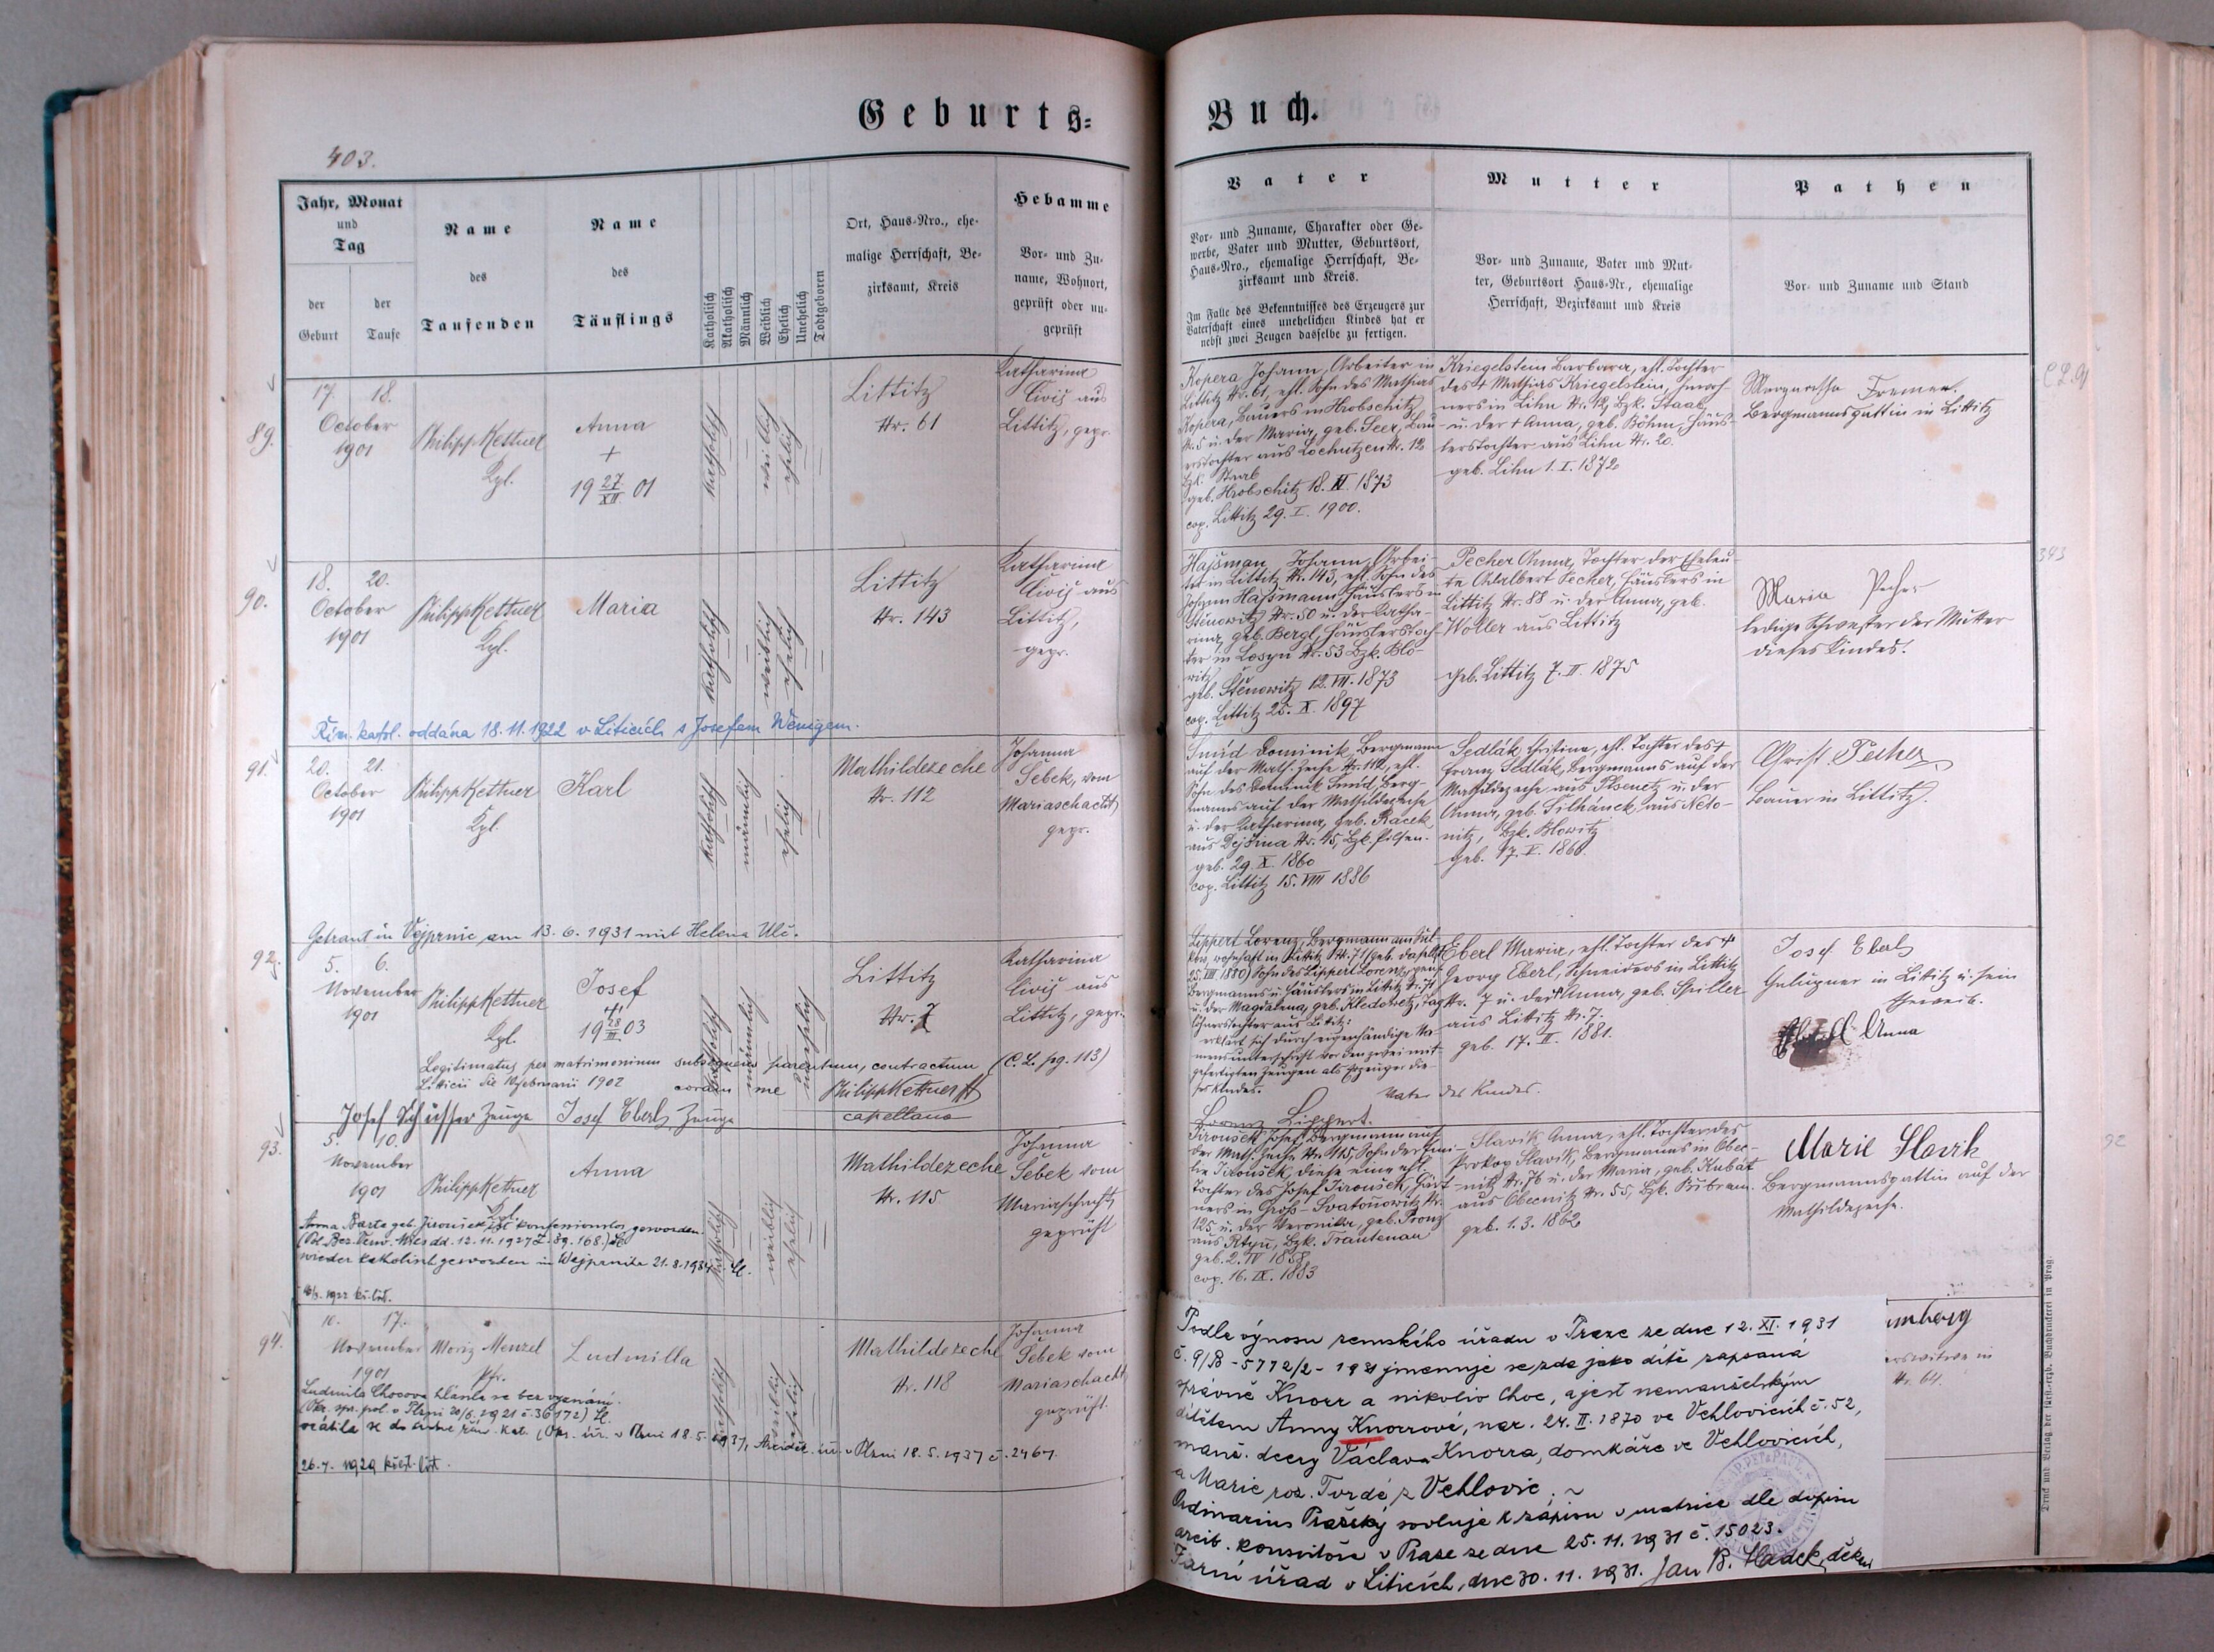 Geburts-
Buch.
403.
Jahr, Monat
und
Tag
der
Geburt
der
Taufe
Name
des
Taufenden
Name
des
Täuflings
Katholisch
Akatholisch
Männlich
Weiblich
Ehelich
Unehelich
Todtgeboren
Ort, Haus-Nro., ehe-
malige Herrschaft, Be-
zirksamt, Kreis
Hebamme
Vor- und Zu-
name, Wohnort,
geprüft oder un-
geprüft
Vater
Vor- und Zuname, Charakter oder Ge-
werbe, Vater und Mutter, Geburtsort,
Haus-Nro., ehemalige Herrschaft, Be-
zirksamt und Kreis.
Im Falle des Bekenntnisses des Erzeugers zur
Vaterschaft eines unehelichen Kindes hat er
nebst zwei Zeugen dasselbe zu fertigen.
Mutter
Vor- und Zuname, Vater und Mut-
ter, Geburtsort Haus-Nr., ehemalige
Herrschaft, Bezirksamt und Kreis
Pathen
Vor- und Zuname und Stand
89.
17. 18.
October
1901
Philipp Kettner
Kpl.
Anna
+
19 27/XII 01
katholisch
weiblich
ehelich
Littitz
Nr. 61
Katharina
Civiš aus
Littitz, gepr.
Kopera Johann, Arbeiter in
Littitz Nr. 61, ehl. Sohn des Mathias
Kopera, Bauers in Hrobschitz
Nr. 5 u. der Maria, geb. Seer, Bau-
erstochter aus Lochutzen Nr. 12
Bzk. Staab
geb. Hrobschitz 18. XI. 1873
cop. Littitz 29. I. 1900.
Kriegelstein Barbara, ehl. Tochter
des + Mathias Kriegelstein,
ners in Lihn Nr. 12, Bzk. Staab,
u. der + Anna, geb. Böhm, Häus-
lerstochter aus Lihn Nr. 20.
geb. Lihn 1. I. 1872
Margaretha
Bergmannsgattin in Littitz
90.
18. 20.
October
1901
Philipp Kettner
Kpl.
Maria
katholisch
weiblich
ehelich
Littitz
Nr. 143
Katharina
Civiš aus
Littitz,
gepr.
Hassman Johann, Arbei-
ter in Littitz Nr. 143, ehl. Sohn des
Johann Hassmann, Häuslers in
Štěnowitz Nr. 50 u. der Katha-
rina, geb. Bergl, Häuslerstoch-
ter in Losyn Nr. 53 Bzk. Blo-
witz
geb. Štěnowitz 12. VII. 1873
cop. Littitz 25. X. 1897
Pecher Anna, Tochter der Eheleu-
te Adalbert Pecher, Häuslers in
Littitz Nr. 88 u. der Anna, geb.
Woller aus Littitz
geb. Littitz 7. II. 1875
Maria Pecher
ledige Schwester der Mutter
dieses Kindes.
343
Řím. katol. oddána 18.11.1922 v Liticích s Josefem Wenigem.
91.
20. 21.
October
1901
Philipp Kettner
Kpl.
Karl
katholisch
männlich
ehelich
Mathildezeche
Nr. 112
Johanna
Šebek, vom
Mariaschacht
gepr.
Šmíd Dominik, Bergmann
auf der Math. Zeche Nr. 112, ehl.
Sohn des Dominik Šmíd, Berg-
manns auf der Mathildezeche
u. der Katharina, geb. Racek
aus Dejšina Nr. 45, Bzk. Pilsen.
geb. 29. X. 1860
cop. Littitz 15. VIII 1886
Sedlák Christina, ehl. Tochter des +
Franz Sedlák, Bergmanns auf der
Mathildezeche aus Plsenetz u. der
Anna, geb. Šilhánek, aus Neto-
nitz, Bzk. Blowitz
geb. 17. V. 1860.
Christ. Pecher
Bauer in Littitz.
Getraut in Vejprnic am 13.6.1931 mit Helena Ulč.
92.
5. 6.
November
1901
Philipp Kettner
Kpl.
Josef
+
19 28/III 03
katholisch
männlich
unehelich
Littitz
Nr. 7
Katharina
Civiš aus
Littitz, gepr.
Lippert Lorenz, Bergmann
wohnhaft in Littitz Nr. 71 (geb. daselbst
25. VIII 1880) Sohn des Lippert Lorenz,
Bergmanns u. Häuslers in Littitz Nr. 71
u. der Magdalena, geb. Kledatsetz, Tag-
löhnerstochter aus Littitz:
erklärt sich durch eigenhändige Na-
mensunterschrift vor den zwei mit-
gefertigten Zeugen als Erzeuger die-
ses Kindes.
Vater des Kindes.
Lorenz Lippert.
Eberl Maria, ehl. Tochter des +
Georg Eberl, Schneiders in Littitz
Nr. 7 u. der + Anna, geb. Spiller
aus Littitz Nr. 7.
geb. 17. II. 1881.
Josef Eberl
in Littitz u. sein
Eheweib.
Anna
Legitimatus per matrimonium subsequens parentum, contractum (C.L. pg. 113)
Liticii die 10 februarii 1902 coram me Philipp Kettner
capellano
Josef Schüsser Zeuge Josef Eberl, Zeuge
93.
5. 10.
November
1901
Philipp Kettner
Kpl.
Anna
katholisch
weiblich
ehelich
Mathildezeche
Nr. 115
Johanna
Šebek vom
Mariaschacht,
geprüft
Jiroušek Josef, Bergmann auf
der Math. Zeche Nr. 115, Sohn der Emi-
lie Jiroušek, diese eine ehl.
Tochter des Josef Jiroušek, Gärt-
ners in Groß-Svatoňowitz Nr.
125 u. der Veronika, geb. Prouz
aus Rtyň, Bzk. Trautenau
geb. 2. IV 1858
cop. 16. IX. 1883
Slavík Anna, ehl. Tochter des
Prokop Slavík, Bergmanns in Obec-
nitz Nr. 76 u. der Maria, geb. Kubát
aus Obecnitz Nr. 55, Bzk. Přibram.
geb. 1. 3. 1862
Marie Slavik
Bergmannsgattin auf der
Mathildezeche.
92
Anna Barta geb. Jiroušek ist konfessionslos geworden.
(Pol. Bez. Verw. Mies dd. 12.11.1927 Z. 39.168.)
wieder katholisch geworden in Wejprnitz 21.8.1934
1922 kř. list.
94.
10. 17.
November
1901
Moriz Menzel
Pfr.
Ludmilla
katholisch
weiblich
ehelich
Mathildezeche
Nr. 118
Johanna
Šebek vom
Mariaschacht
geprüft.
Ludmila Chocova hlásila se bez vyznání.
(Okr. spr. pol. v Plzni 20/6. 1921 č. 36172)
vrátila se do církve řím. kat. (Okr. úř. v Plzni 18.5.1937, Arciděk. úř. v Plzni 18.5.1937 č. 2467.
26.7. 1929 křest. list.
Podle výnosu zemského úřadu v Praze ze dne 12. XI. 1931
č. 9/B - 5772/2 - 1931 jmenuje se zde jako dítě zapsaná
správně Knorr a nikoliv Choc, a jest nemanželským
dítětem Anny Knorrové, nar. 24. II. 1870 ve Vehlovicích č. 52,
manž. dcery Václava Knorra, domkáře ve Vehlovicích,
a Marie roz. Tvrdé z Vehlovic. ~
Ordinarius Pražský svoluje k zápisu v matrice dle dopisu
arcib. konsistoře v Praze ze dne 25.11.1931 č. 15023.
Farní úřad v Liticích, dne 30.11.1931. Jan B. Hladek, děkan
Nr. 64.
Druck und Verlag der fürst-erzb. Buchdruckerei in Prag.